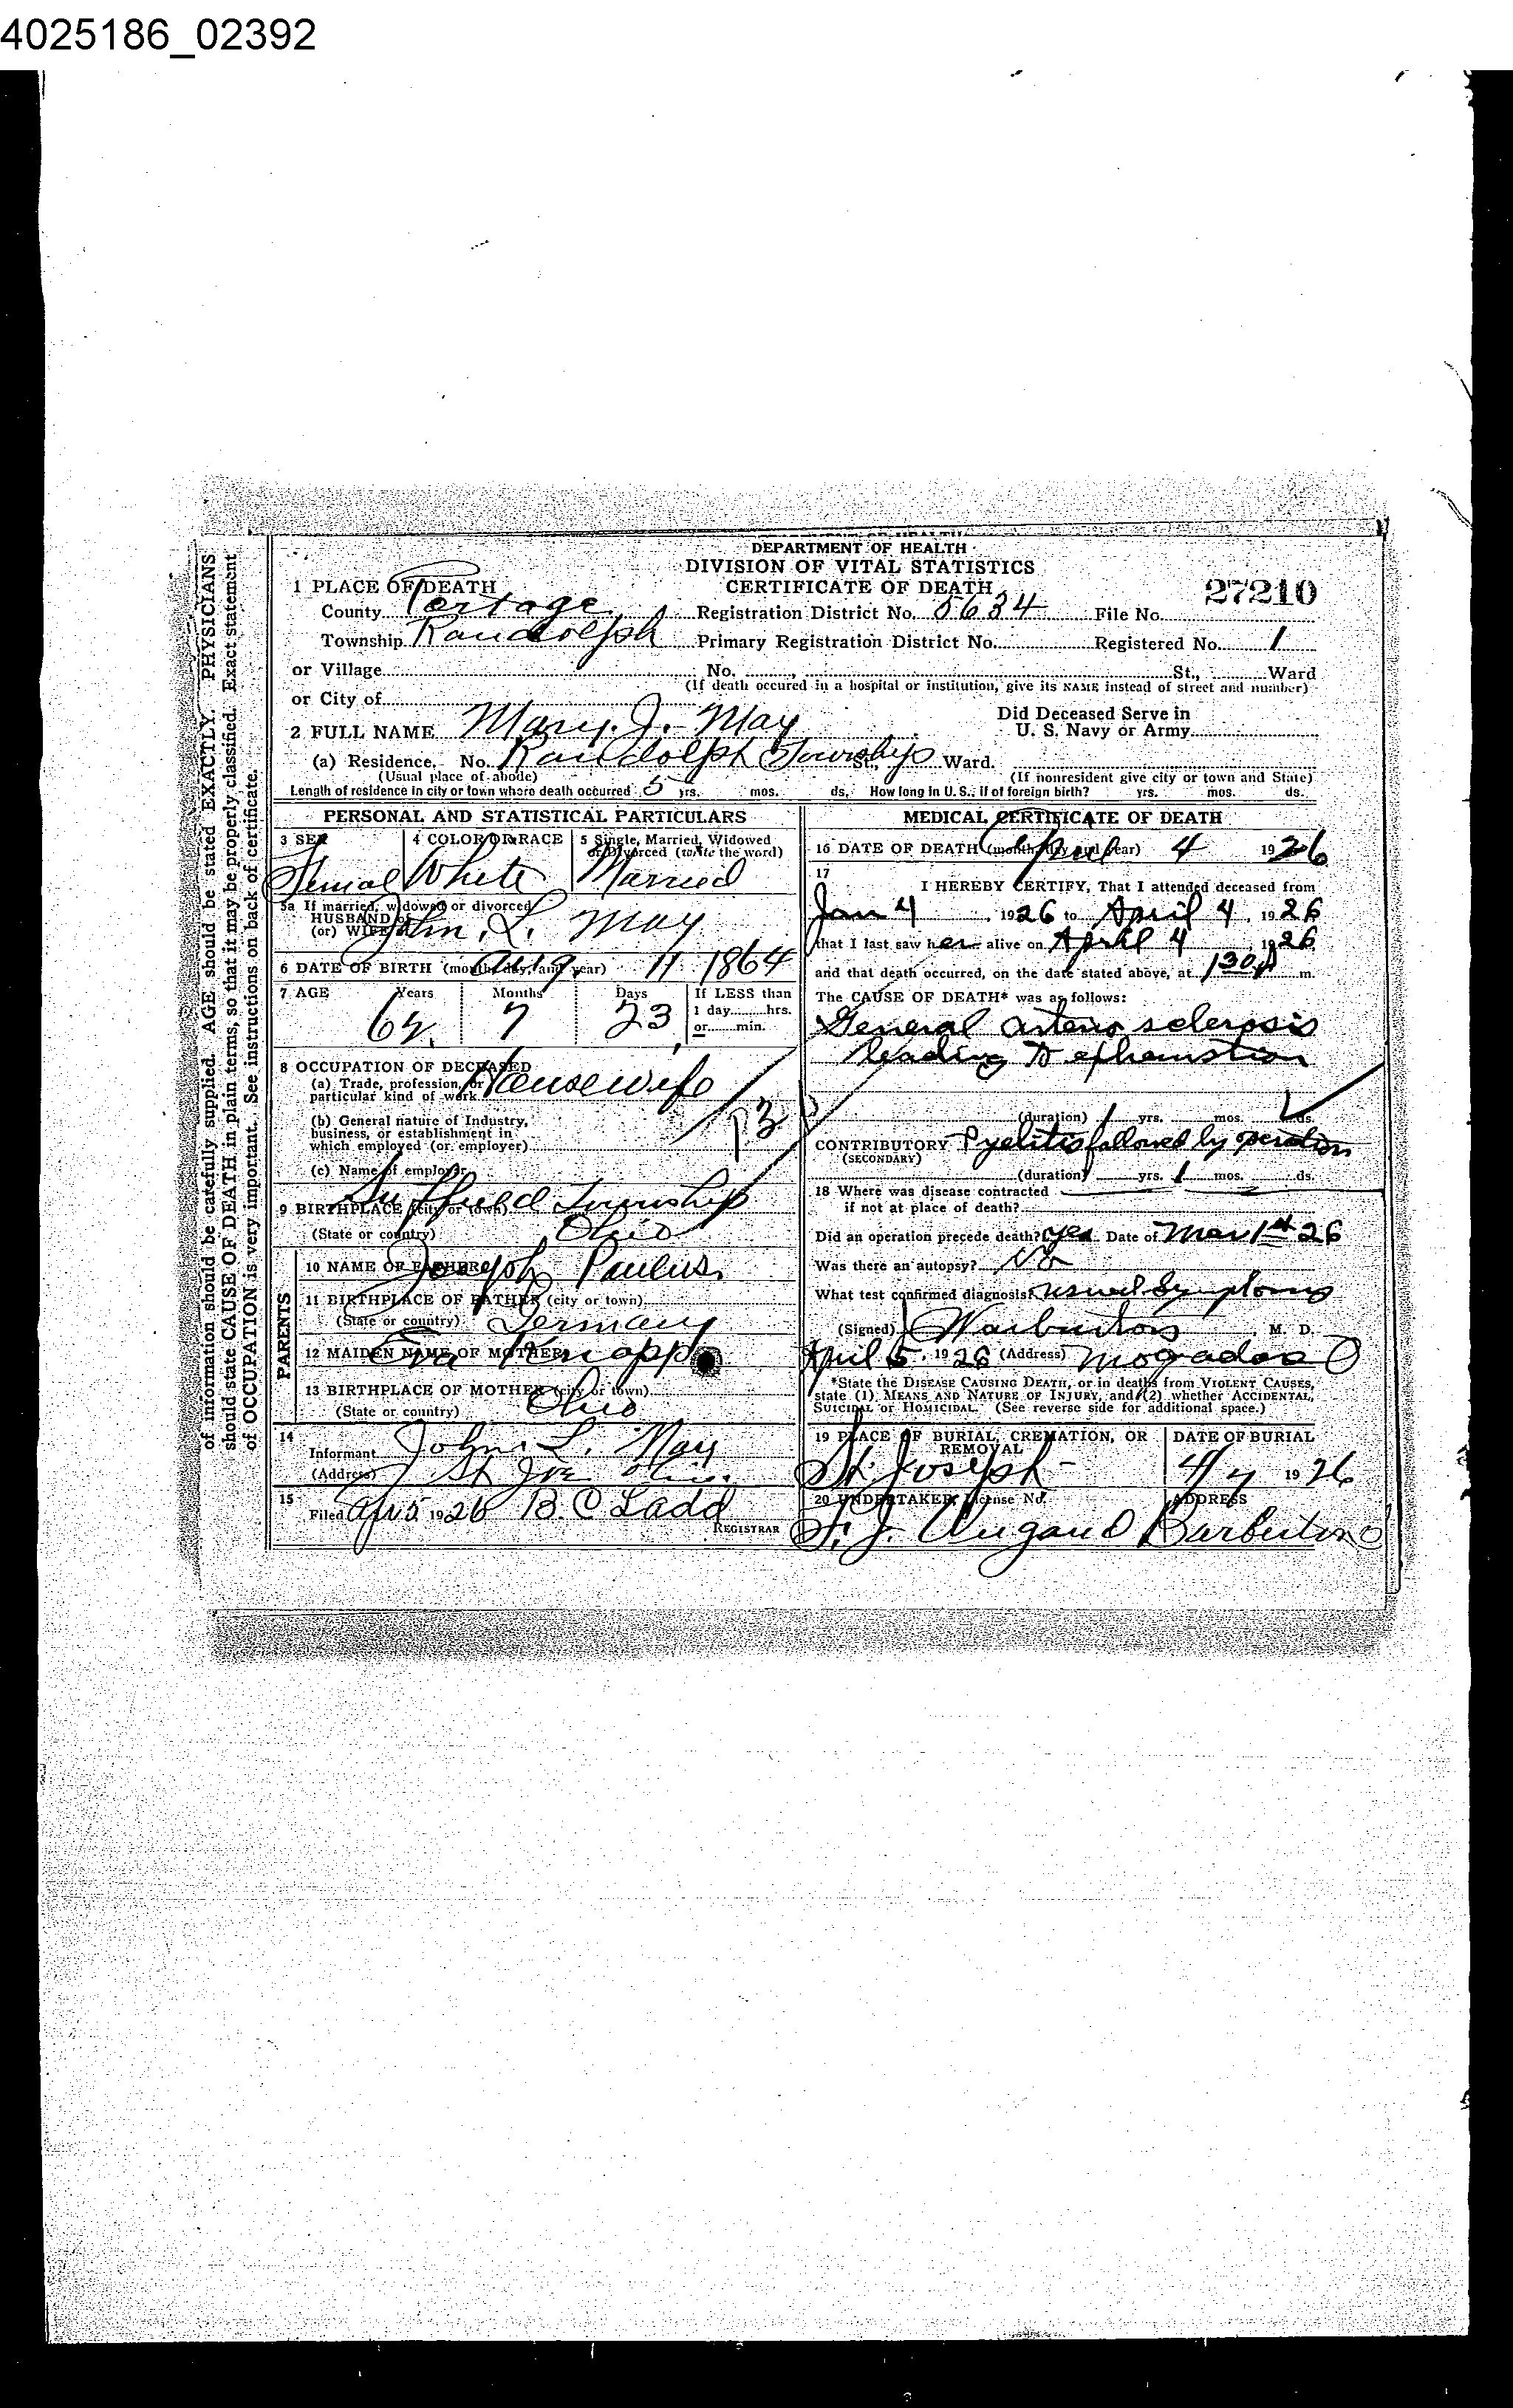 4025186_02392
DEPARTMENT OF HEALTH
DIVISION OF VITAL STATISTICS
CERTIFICATE OF DEATH
27210
1 PLACE OF DEATH
County Portage Registration District No. File No.
Township Randolph Primary Registration District No. Registered No. 1
or Village No. St., Ward
(If death occured in a hospital or institution, give its NAME instead of street and number)
or City of
2 FULL NAME Mary. J. May
Did Deceased Serve in
U. S. Navy or Army
(a) Residence, No. Randolph Township St., Ward.
(Usual place of abode) (If nonresident give city or town and State)
Length of residence in city or town where death occurred 5 yrs. mos. ds. How long in U. S., if of foreign birth? yrs. mos. ds.
PERSONAL AND STATISTICAL PARTICULARS
3 SEX 4 COLOR OR RACE 5 Single, Married, Widowed
or Divorced (write the word)
Femal White Married
5a If married, widowed or divorced
HUSBAND of
(or) WIFE of John. L. May
6 DATE OF BIRTH (month, day, and year) Aug. 11 1864
7 AGE Years Months Days If LESS than
1 day hrs.
or min.
62. 7 23
8 OCCUPATION OF DECEASED
(a) Trade, profession, or
particular kind of work Housewife
(b) General nature of Industry,
business, or establishment in
which employed (or employer)
(c) Name of employer
9 BIRTHPLACE (city or town) Suffield Township
(State or country) Ohio
PARENTS
10 NAME OF FATHER Joseph Paulus
11 BIRTHPLACE OF FATHER (city or town)
(State or country) Germany
12 MAIDEN NAME OF MOTHER Eva Knapp
13 BIRTHPLACE OF MOTHER (city or town)
(State or country) Ohio
14
Informant John. L. May
(Address) St Joe Ohio.
15
Filed Apr 5 1926 B. C Ladd
REGISTRAR
MEDICAL CERTIFICATE OF DEATH
16 DATE OF DEATH (month, day and year) April 4 1926
17
I HEREBY CERTIFY, That I attended deceased from
Jan 4 1926 to April 4, 1926
that I last saw her alive on April 4 1926
and that death occurred, on the date stated above, at 130 m.
The CAUSE OF DEATH* was as follows:
General arterio sclerosis
leading to exhaustion
(duration) 1 yrs. mos. ds.
CONTRIBUTORY Pyelitis followed by operation
(SECONDARY)
(duration) yrs. 1 mos. ds.
18 Where was disease contracted
if not at place of death?
Did an operation precede death? yes Date of Mar 1st 26
Was there an autopsy? No
What test confirmed diagnosis? usual Symptoms
(Signed) Warburton M. D.
April 5, 1926 (Address) Mogadore O
*State the DISEASE CAUSING DEATH, or in deaths from VIOLENT CAUSES,
state (1) MEANS AND NATURE OF INJURY, and (2) whether ACCIDENTAL,
SUICIDAL or HOMICIDAL. (See reverse side for additional space.)
19 PLACE OF BURIAL, CREMATION, OR
REMOVAL DATE OF BURIAL
St. Joseph 4/7 1926
20 UNDERTAKER, License No. ADDRESS
Barberton O
of information should be carefully supplied. AGE should be stated EXACTLY. PHYSICIANS
should state CAUSE OF DEATH in plain terms, so that it may be properly classified. Exact statement
of OCCUPATION is very important. See instructions on back of certificate.